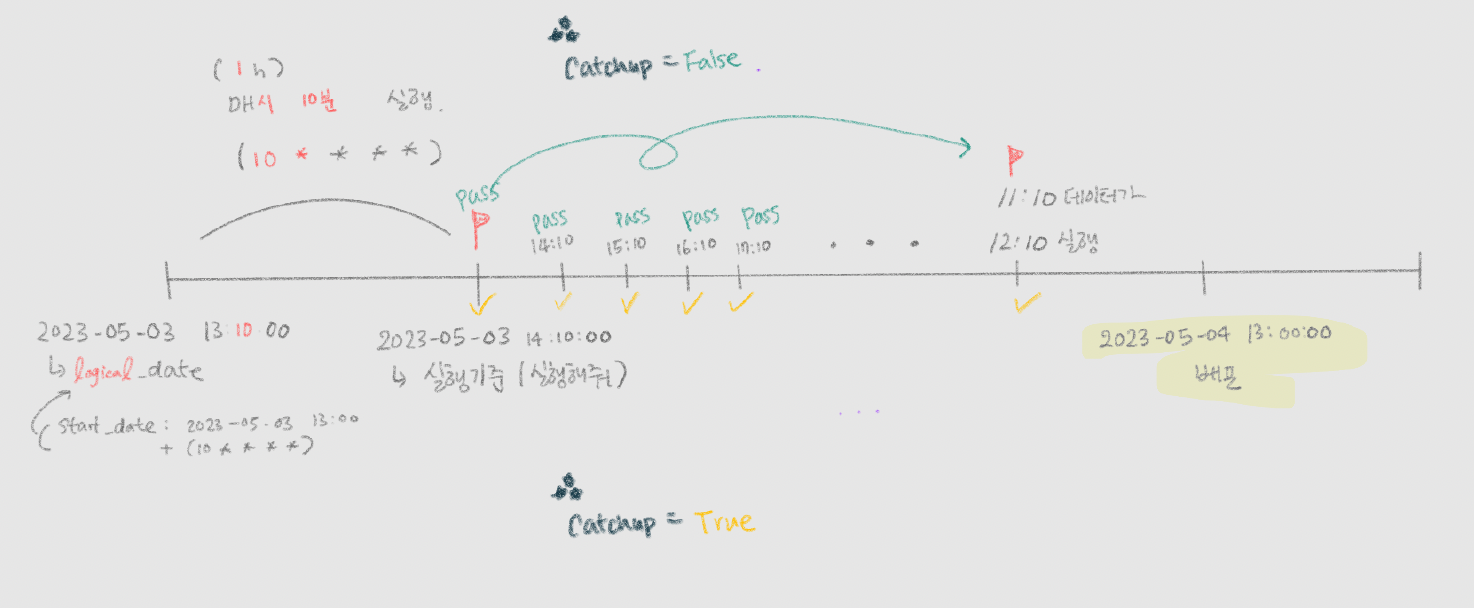 Catchup = False .
(1h)
매시 10분 실행.
(10 * * * *)
pass
pass pass pass pass
14:10 15:10 16:10 17:10
11:10 데이터가
12:10 실행
2023-05-03 13:10:00
↳ logical_date
start_date : 2023-05-03 13:00
+ (10 * * * *)
2023-05-03 14:10:00
↳ 실행기준 (실행해줘!)
2023-05-04 13:00:00
배포
Catchup = True